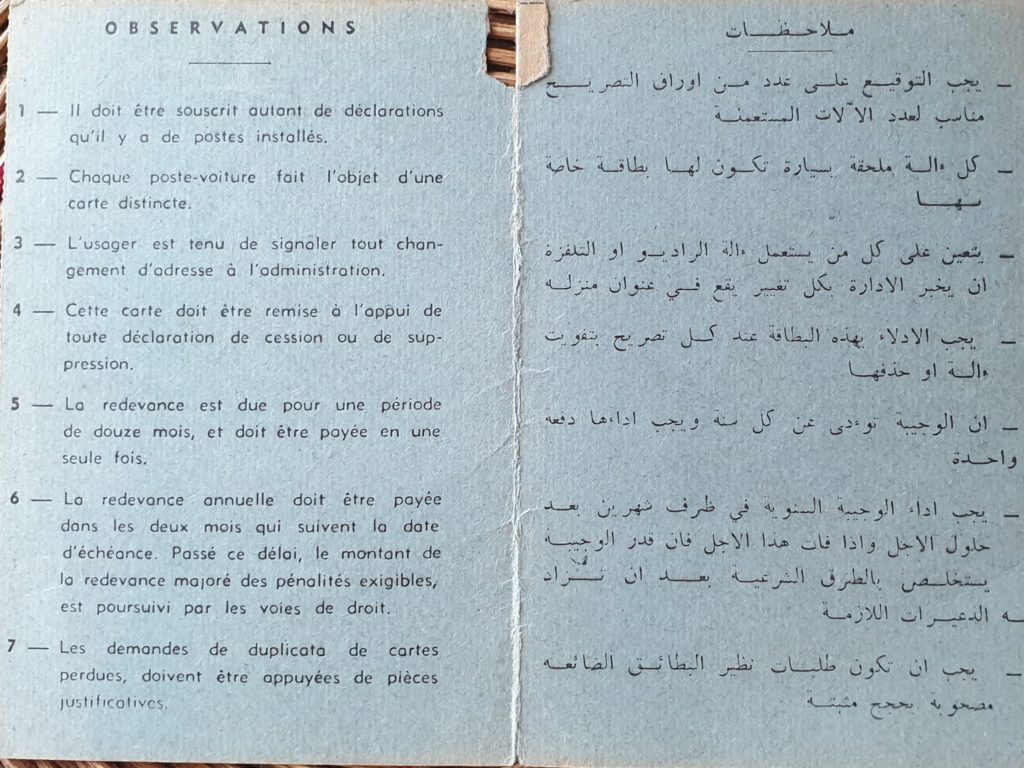 OBSERVATIONS
1 — Il doit être souscrit autant de déclarations
qu'il y a de postes installés.
2 — Chaque poste-voiture fait l'objet d'une
carte distincte.
3 — L'usager est tenu de signaler tout chan-
gement d'adresse à l'administration.
4 — Cette carte doit être remise à l'appui de
toute déclaration de cession ou de sup-
pression.
5 — La redevance est due pour une période
de douze mois, et doit être payée en une
seule fois.
6 — La redevance annuelle doit être payée
dans les deux mois qui suivent la date
d'échéance. Passé ce délai, le montant de
la redevance majoré des pénalités exigibles,
est poursuivi par les voies de droit.
7 — Les demandes de duplicata de cartes
perdues, doivent être appuyées de pièces
justificatives.
ملاحظات
— يجب التوقيع على عدد من اوراق التصريح
مناسب لعدد الآلات المستعمنة
— كل ءالة ملحقة بسيارة تكون لها بطاقة خاصة
بها
— يتعين على كل من يستعمل ءالة الراديو او التلفزة
ان يخبر الادارة بكل تغيير يقع في عنوان منزله
— يجب الادلاء بهذه البطاقة عند كل تصريح بتفويت
ءالة او حذفها
— ان الوجيبة توءدى عن كل سنة ويجب اداءها دفعة
واحدة
— يجب اداء الوجيبة السنوية في ظرف شهرين بعد
حلول الاجل واذا فات هذا الاجل فان قدر الوجيبة
يستخلص بالطرق الشرعية بعد ان تزاد
له الذعيرات اللازمة
— يجب ان تكون طلبات نظير البطائق الضائعه
مصحوبة بحجج مثبتة